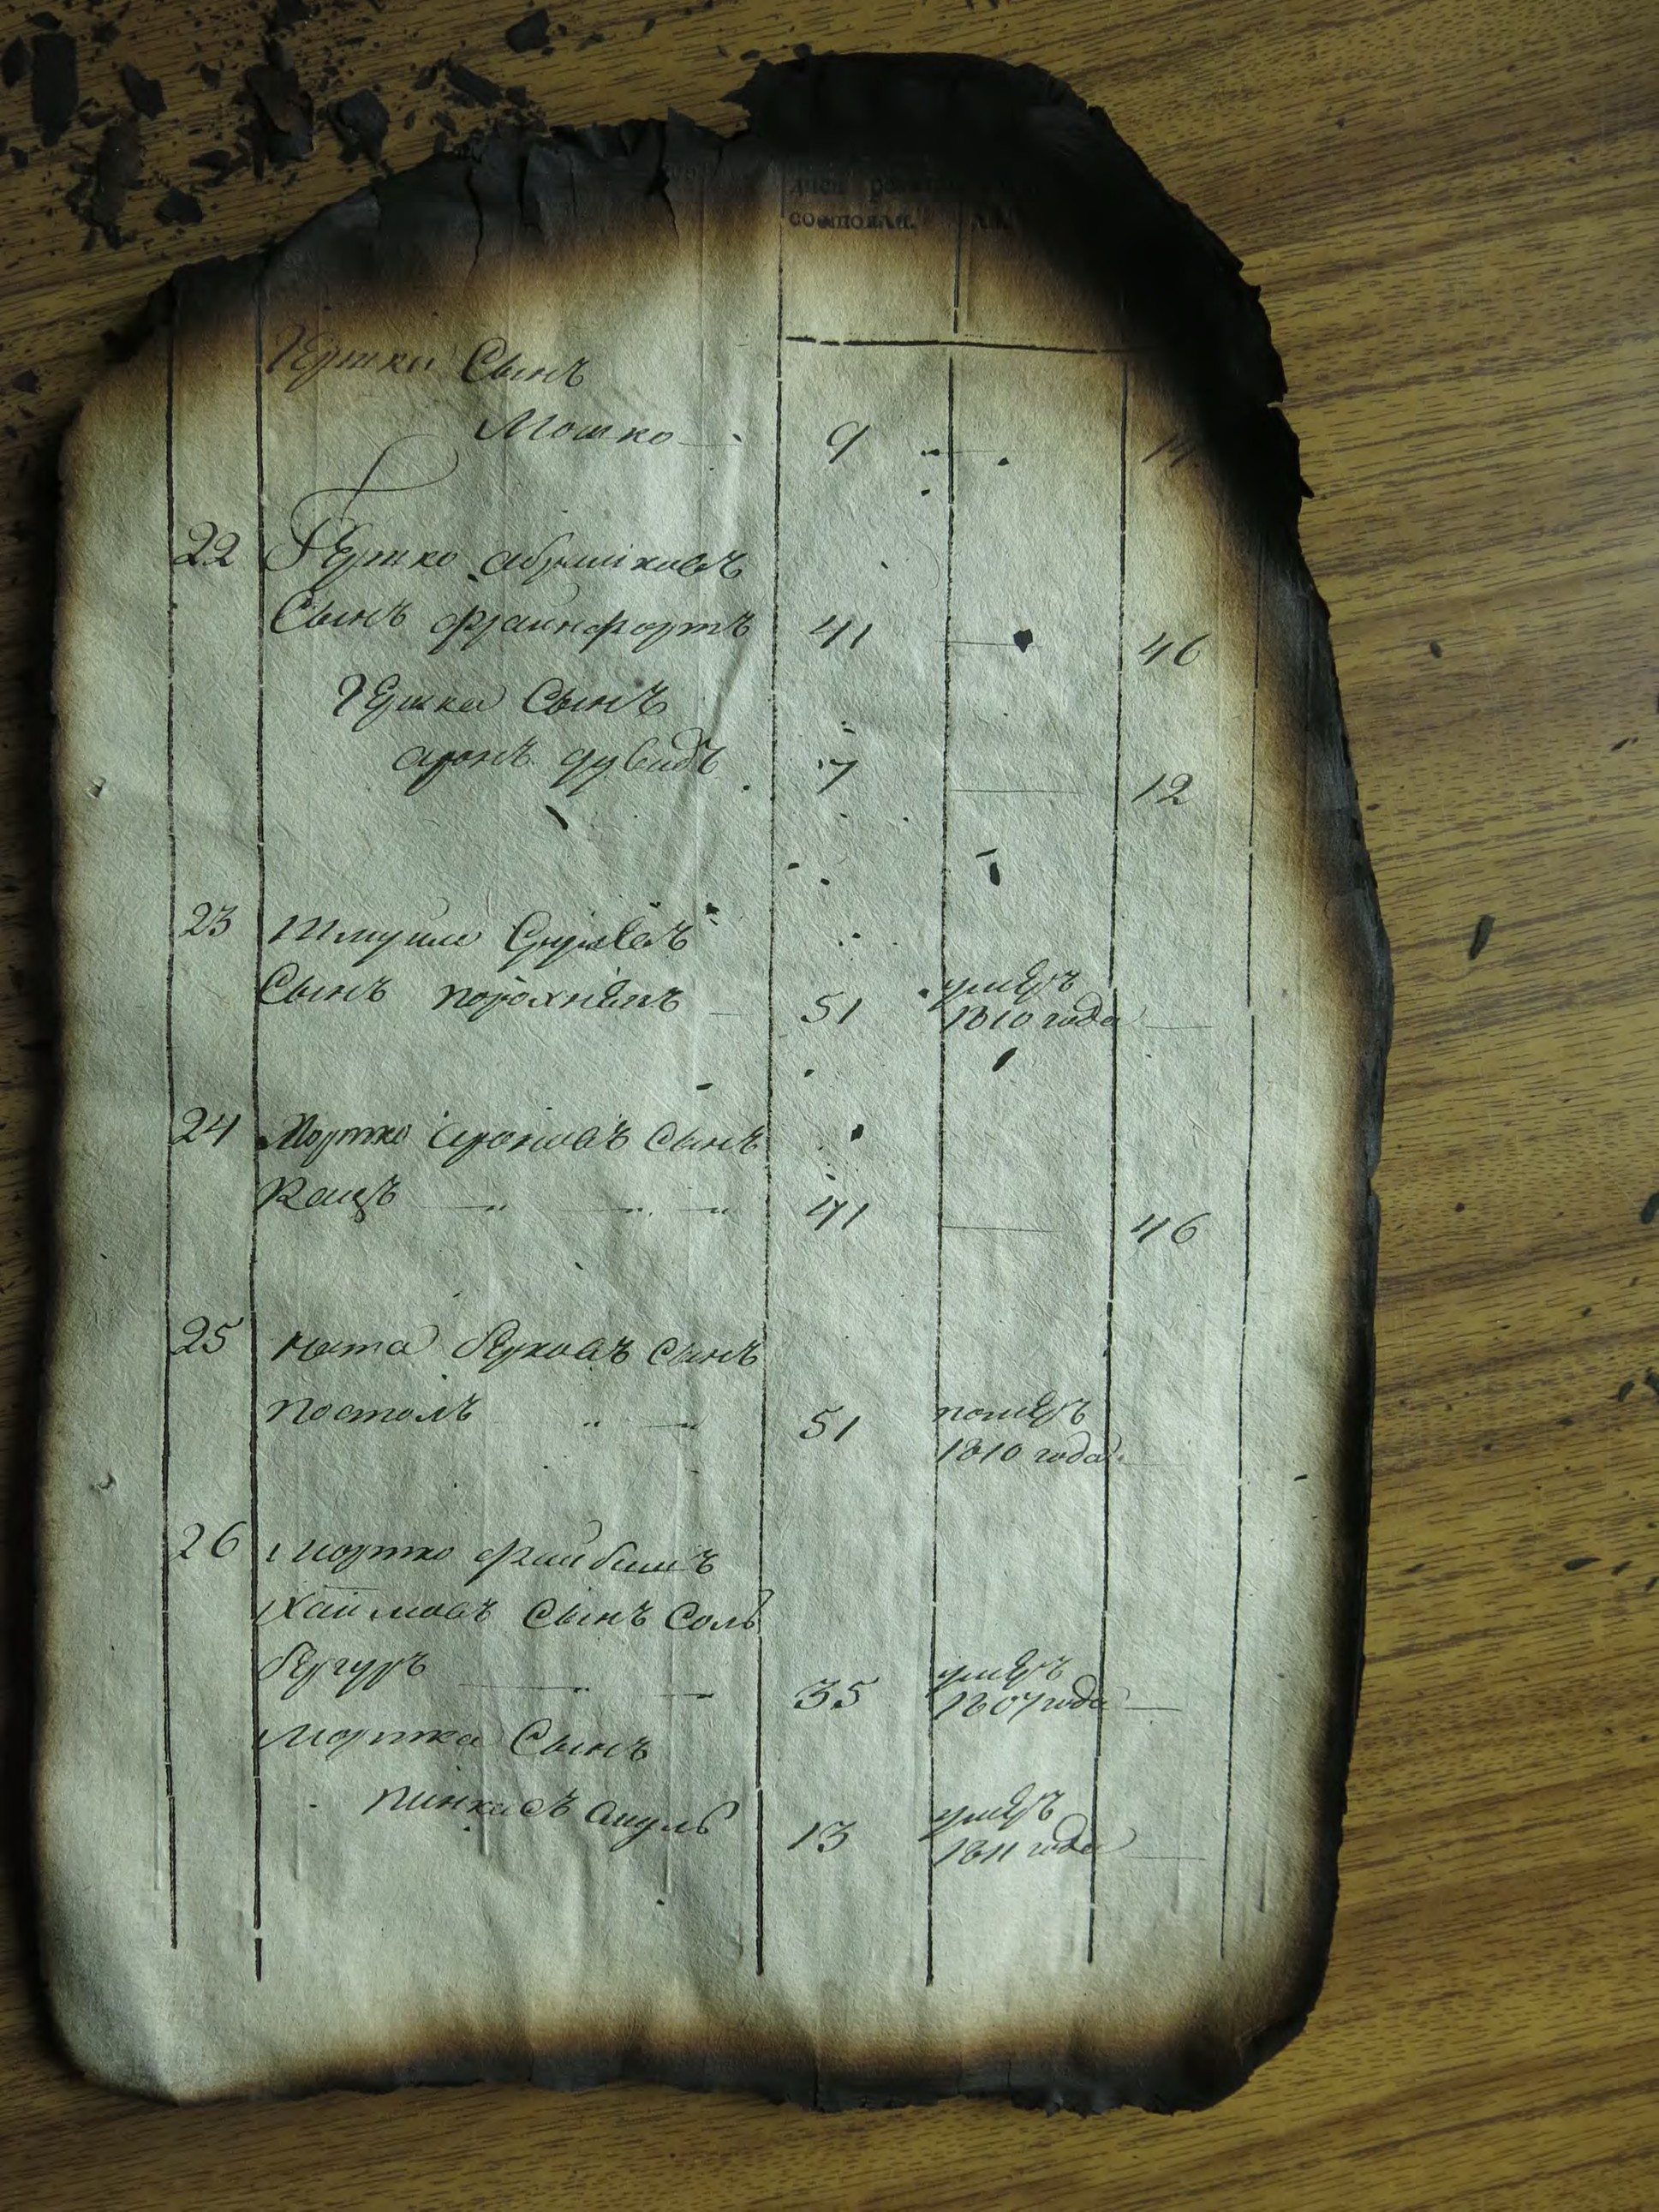 состояли.
Гершка Сынъ
Мошко 9 14
22 Гершко абрамковъ
Сынъ франкфортъ 41 46
Гершка Сынъ
аронъ дувидъ 7 12
23 Шмуило
Сынъ 51 умеръ 1810 года
24 Мортко ароновъ Сынъ
Кацъ 41 46
25 Ната берковъ Сынъ
постолъ 51 померъ
1810 года
26 Мортко файбишъ
Хаимовъ Сынъ Соль
бергеръ 35 умеръ 1807 года
Мортка Сынъ
пинкасъ 13 умеръ
1811 года